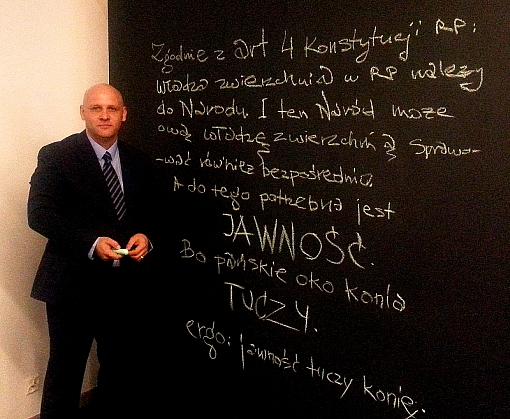 Zgodnie z art 4 Konstytucji RP:
władza zwierzchnia w RP należy
do Narodu. I ten Naród może
ową władzę zwierzchnią sprawo-
-wać również bezpośrednio.
A do tego potrzebna jest
JAWNOŚĆ.
Bo pańskie oko konia
TUCZY.
ergo: jawność tuczy konie.